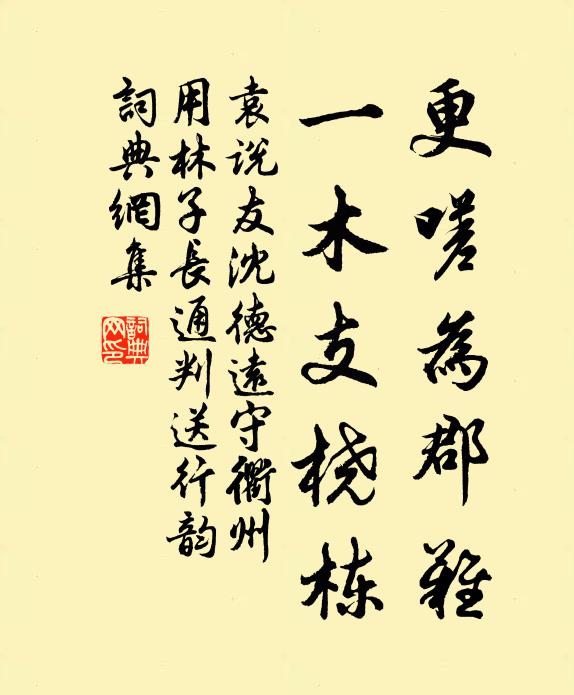 更嗟為郡難
一木支桡栋
袁说友沈德遠守衢州
用林子長通判送行韵
詞典網集
詞典网印